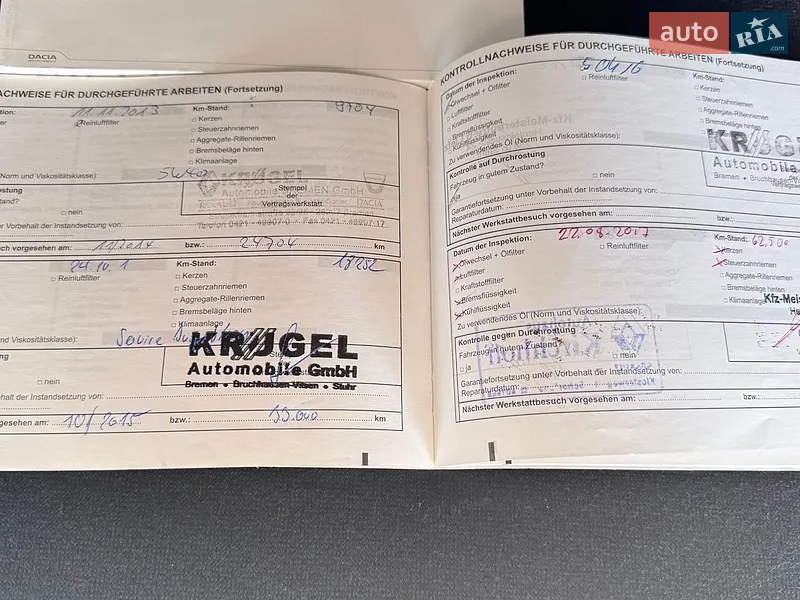 auto RIA.com
DACIA
NACHWEISE FÜR DURCHGEFÜHRTE ARBEITEN (Fortsetzung)
11.11.2013
Km-Stand: 9704
Reinluftfilter
Kerzen
Steuerzahnriemen
Aggregate-Rillenriemen
Bremsbeläge hinten
Klimaanlage
(Norm und Viskositätsklasse): 5W40
KRÜGEL
Stempel
der
Vertragswerkstatt
RENAULT
DACIA
Telefon 0421 - 49907-0 · Fax 0421 - 49907-17
nein
er Vorbehalt der Instandsetzung von:
such vorgesehen am: 11/2014 bzw.: 24704 km
Km-Stand: 17252
Reinluftfilter
Kerzen
Steuerzahnriemen
Aggregate-Rillenriemen
Bremsbeläge hinten
Klimaanlage
und Viskositätsklasse):
KRÜGEL
Automobile GmbH
Bremen • Bruchhausen-Vilsen • Stuhr
nein
halt der Instandsetzung von:
gesehen am: 10/2015 bzw.: 33.000 km
KONTROLLNACHWEISE FÜR DURCHGEFÜHRTE ARBEITEN (Fortsetzung)
Datum der Inspektion: 5.04.16
Km-Stand:
Ölwechsel + Ölfilter
Reinluftfilter
Luftfilter
Kraftstofffilter
Bremsflüssigkeit
Kühlflüssigkeit
Kerzen
Steuerzahnriemen
Aggregate-Rillenriemen
Bremsbeläge hinten
Klimaanlage
Zu verwendendes Öl (Norm und Viskositätsklasse):
Kontrolle auf Durchrostung
Fahrzeug in gutem Zustand?
ja
nein
KRÜGEL
Automobile
Garantiefortsetzung unter Vorbehalt der Instandsetzung von:
Reparaturdatum:
Nächster Werkstattbesuch vorgesehen am: bzw.:
Datum der Inspektion: 22.08.2017
Km-Stand: 62,500
Ölwechsel + Ölfilter
Reinluftfilter
Luftfilter
Kraftstofffilter
Bremsflüssigkeit
Kühlflüssigkeit
Kerzen
Steuerzahnriemen
Aggregate-Rillenriemen
Bremsbeläge hinten
Klimaanlage
Kfz-Meis
Zu verwendendes Öl (Norm und Viskositätsklasse):
Kontrolle gegen Durchrostung
Fahrzeug in gutem Zustand?
ja
nein
Garantiefortsetzung unter Vorbehalt der Instandsetzung von:
Reparaturdatum:
Nächster Werkstattbesuch vorgesehen am: bzw.: